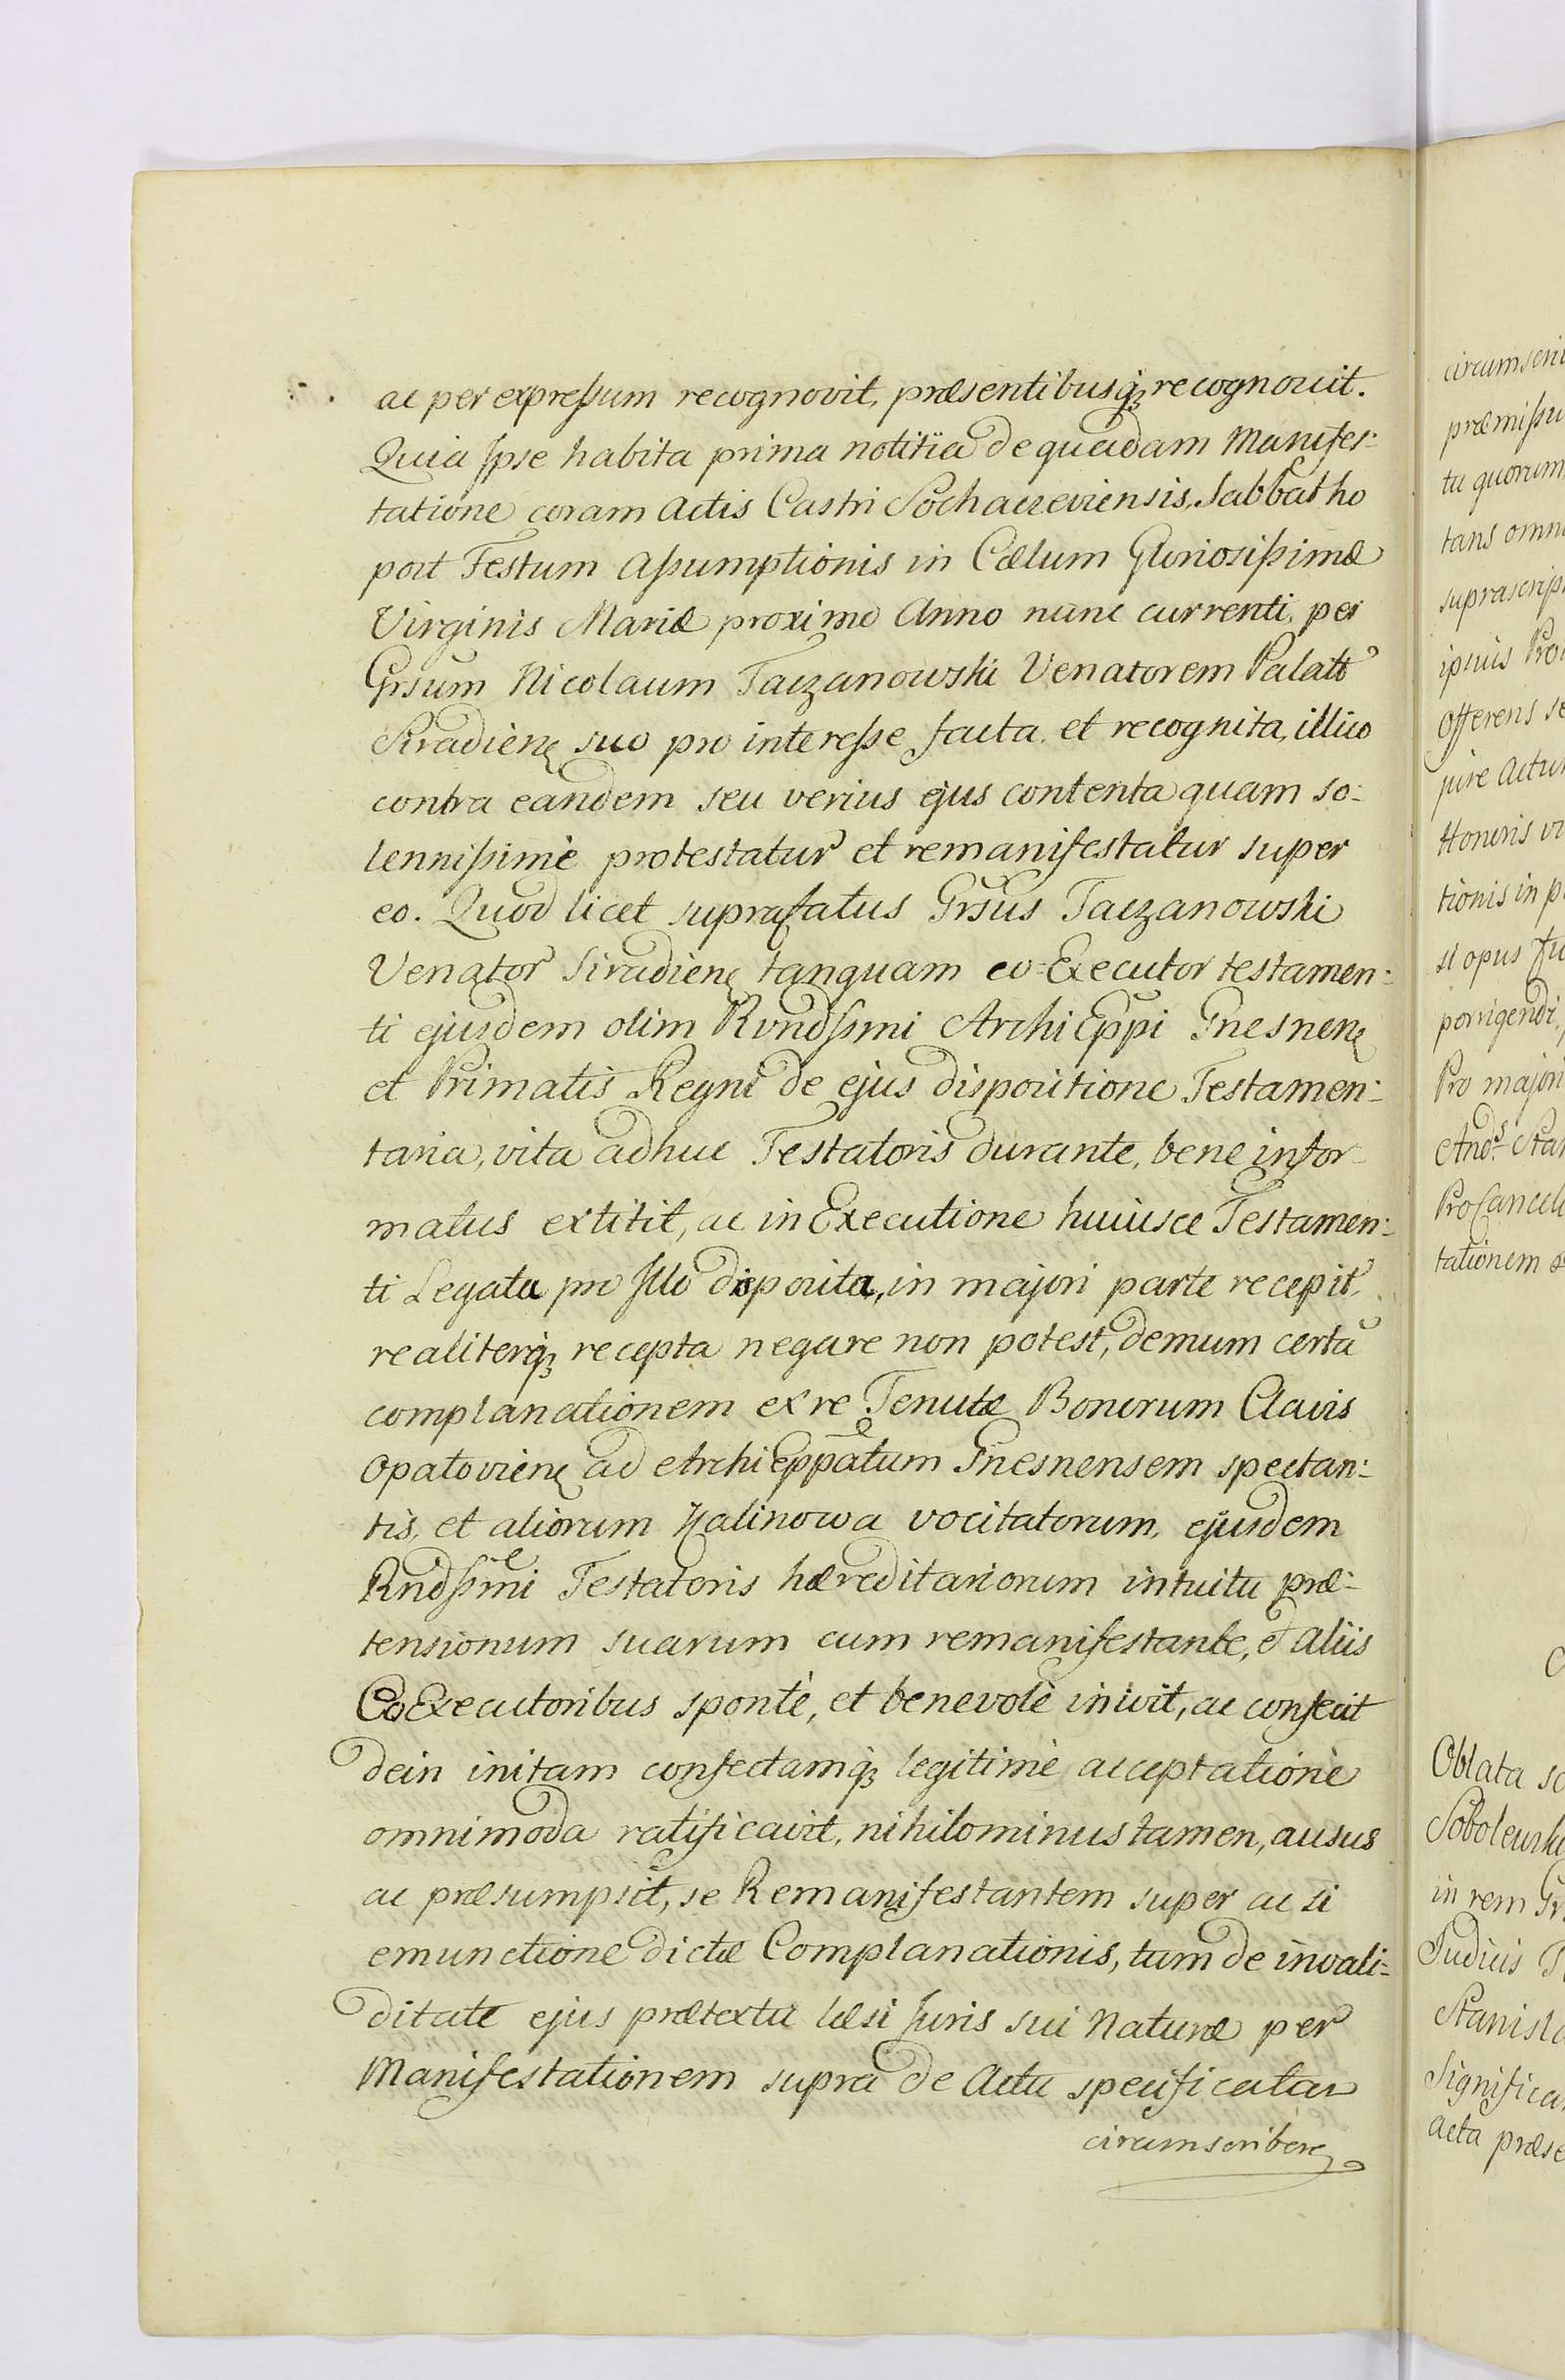 ac per expressum recognovit, præsentibusq; recognouit.
Quia Ipse habita prima notitia de quadam Manifes:
tatione coram Actis Castri Sochaczeviensis, Sabbatho
post Festum Assumptionis in Cælum Gloriosissimæ
Virginis Mariæ proximo Anno nunc currenti, per
Grsum Nicolaum Taczanowski Venatorem Palatt
Siradien suo pro interesse facta et recognita, illico
contra eandem seu verius ejus contenta quam so:
lennissimè protestatur et remanifestatur super
eo. Quod licet suprafatus Grsus Taczanowski
Venator Siradien tanquam co-Executor testamen:
ti ejusdem olim Rvndssmi ArchiEppi Gnesnen
et Primatis Regni de ejus dispositione Testamen:
taria, vita adhuc Testatoris durante, bene infor-
matus extitit, ac in Executione huiusce Testamen:
ti Legata pro Illo disposita, in majori parte recepit,
realiterq; recepta negare non potest, demum certā
complanationem ex re Tenutæ Bonorum Clavis
Opatovien ad ArchiEppatum Gnesnensem spectan:
tis, et aliorum Kalinowa vocitatorum, ejusdem
Rndssmi Testatoris hæreditariorum intuitu præ:
tensionum suarum cum remanifestante, et aliis
CoExecutoribus spontè, et benevolè inivit, ac confecit
dein initam confectamq; legitimè acceptatione
omnimoda ratificavit, nihilominus tamen, ausus
ac præsumpsit, se Remanifestantem super ac si
emunctione dictæ Complanationis, tum de invali:
ditate ejus prætextu læsi Juris sui Naturæ per
Manifestationem supra de Actu specificatam
circumscribere
circumscri
præmissu
ta quorum
tans omni
suprascrip
ipsius Pro
Offerens se
jure Actu
Honoris vi
tionis in p
si opus fu
porrigendi
Pro majori
Andr Stan
ProCancell
tationem
Oblata
Sobolewski
in rem Gr
Judicis
Stanisla
Significa
Acta præse